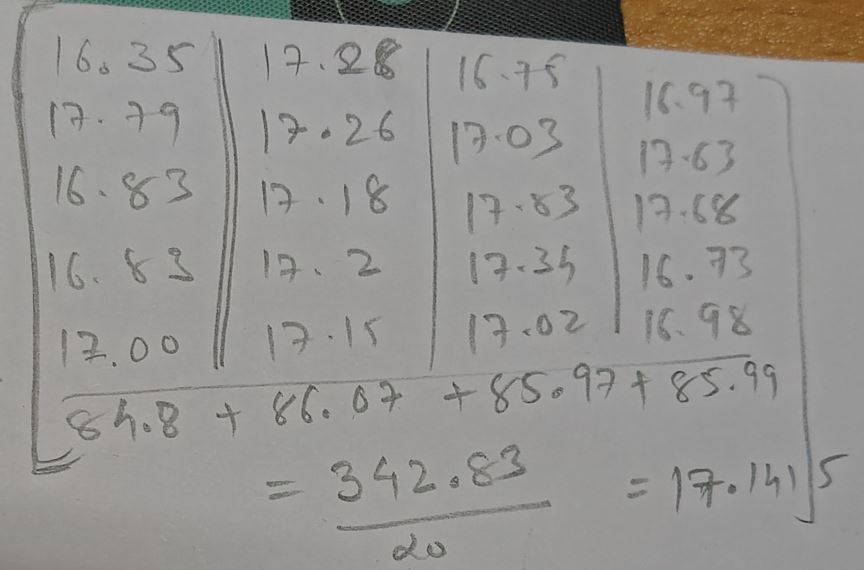 16.35 17.28 16.75 16.97
17.79 17.26 17.03 17.63
16.83 17.18 17.83 17.68
16.83 17.2 17.34 16.73
17.00 17.15 17.02 16.98
84.8 + 86.07 + 85.97 + 85.99
= 342.83 = 17.1415
20